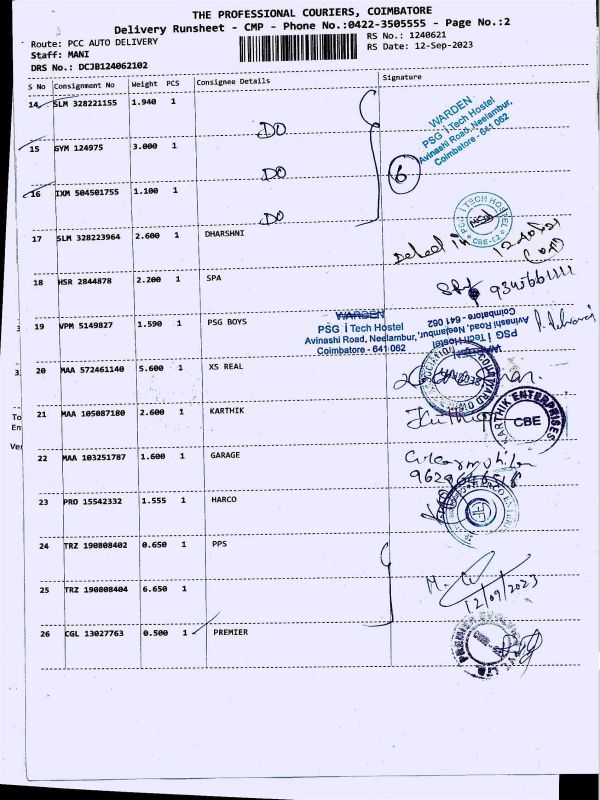 THE PROFESSIONAL COURIERS, COIMBATORE
Delivery Runsheet - CMP - Phone No.:0422-3505555 - Page No.:2
Route: PCC AUTO DELIVERY RS No.: 1240621
Staff: MANI RS Date: 12-Sep-2023
DRS No.: DCJB124062102
S No Consignment No Weight PCS Consignee Details Signature
14 SLM 328221155 1.940 1 DO
WARDEN
PSG iTech Hostel
Avinashi Road, Neelambur,
Coimbatore - 641 062
15 GYM 124975 3.000 1 DO
6
16 IXM 504501755 1.100 1 DO
17 SLM 328223964 2.600 1 DHARSHNI
18 HSR 2844878 2.200 1 SPA
9345661111
19 VPM 5149827 1.590 1 PSG BOYS
WARDEN
PSG iTech Hostel
Avinashi Road, Neelambur,
Coimbatore - 641 062
WARDEN
PSG iTech Hostel
Avinashi Road, Neelambur,
Coimbatore - 641 062
20 MAA 572461140 5.600 1 XS REAL
21 MAA 105087180 2.600 1 KARTHIK
KARTHIK ENTERPRISES
CBE
22 MAA 103251787 1.600 1 GARAGE
23 PRO 15542332 1.555 1 HARCO
24 TRZ 190808402 0.650 1 PPS
25 TRZ 190808404 6.650 1
12/09/2023
26 CGL 13027763 0.500 1 PREMIER
To
En
Ver